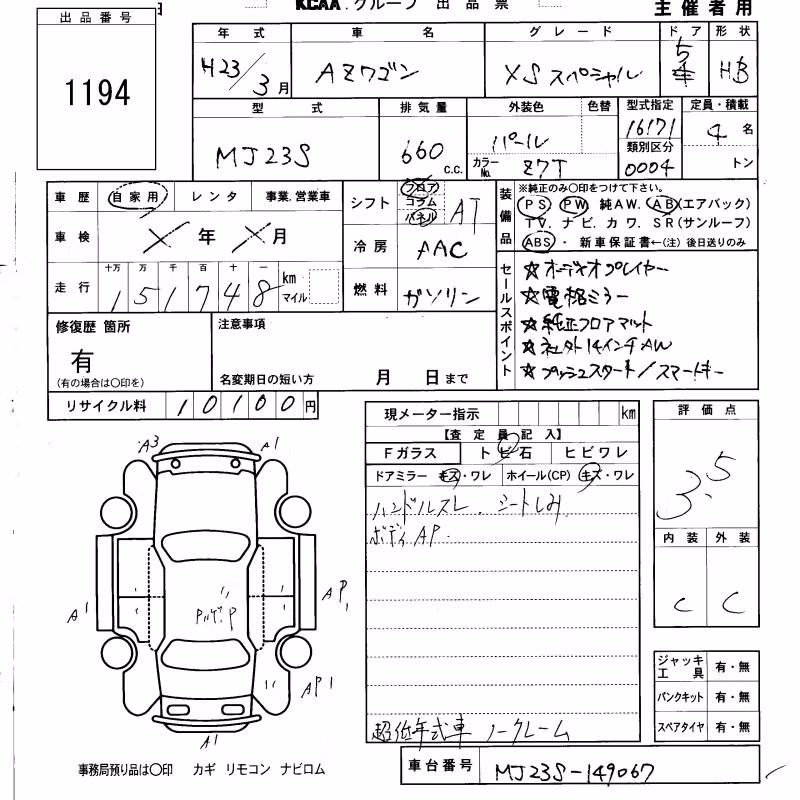 KCAA.グループ 出品票 主催者用
出品番号
1194
年式 車名 グレード ドア 形状
H23/3月 AZワゴン XSスペシャル 5 H.B
型式 排気量 外装色 色替 型式指定 定員・積載
MJ23S 660 c.c. パール 16171 4名
類別区分
カラーNo. Z7T 0004 トン
車歴 自家用 レンタ 事業.営業車
車検 ╳年╳月
走行 十万 万 千 百 十 一
151748 km
マイル
シフト フロア コラム パネル AT
冷房 AAC
燃料 ガソリン
装備品
※純正のみ〇印をつけて下さい。
PS PW 純AW. AB(エアバック)
TV. ナビ. カワ. SR(サンルーフ)
ABS・新車保証書←(注)後日送りのみ
セールスポイント
☆オーディオプレイヤー
☆電格ミラー
☆純正フロアマット
☆社外14インチAW
☆プッシュスタート/スマートキー
修復歴 箇所
有
(有の場合は〇印を)
注意事項
名変期日の短い方 月 日まで
リサイクル料 10100円
現メーター指示 km
【査定員記入】
Fガラス トビ石 ヒビワレ
ドアミラー キズ・ワレ ホイール(CP) キズ・ワレ
ハンドルスレ. シートしみ
ボディAP.
超低年式車 ノークレーム
評価点
3.5
内装 外装
C C
ジャッキ工具 有・無
パンクキット 有・無
スペアタイヤ 有・無
A3 A1
A1 AP1
AP1
A1
事務局預り品は〇印 カギ リモコン ナビロム
車台番号 MJ23S-149067